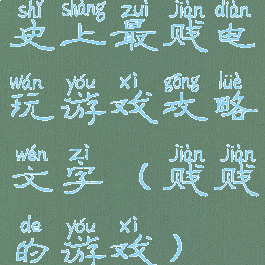 shǐ shàng zuì jiàn diàn
史上最贱电
wán yóu xì gōng lüè
玩游戏攻略
wén zì jiàn jiàn
文字（贱贱
de yóu xì
的游戏）